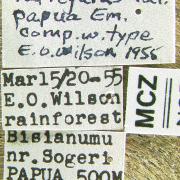 papua Em.
comp. w. type
E. O. Wilson 1955
Mar15/20-55
E.O.Wilson
rainforest
MCZ
Bisianumu
nr. Sogeri
PAPUA 500M